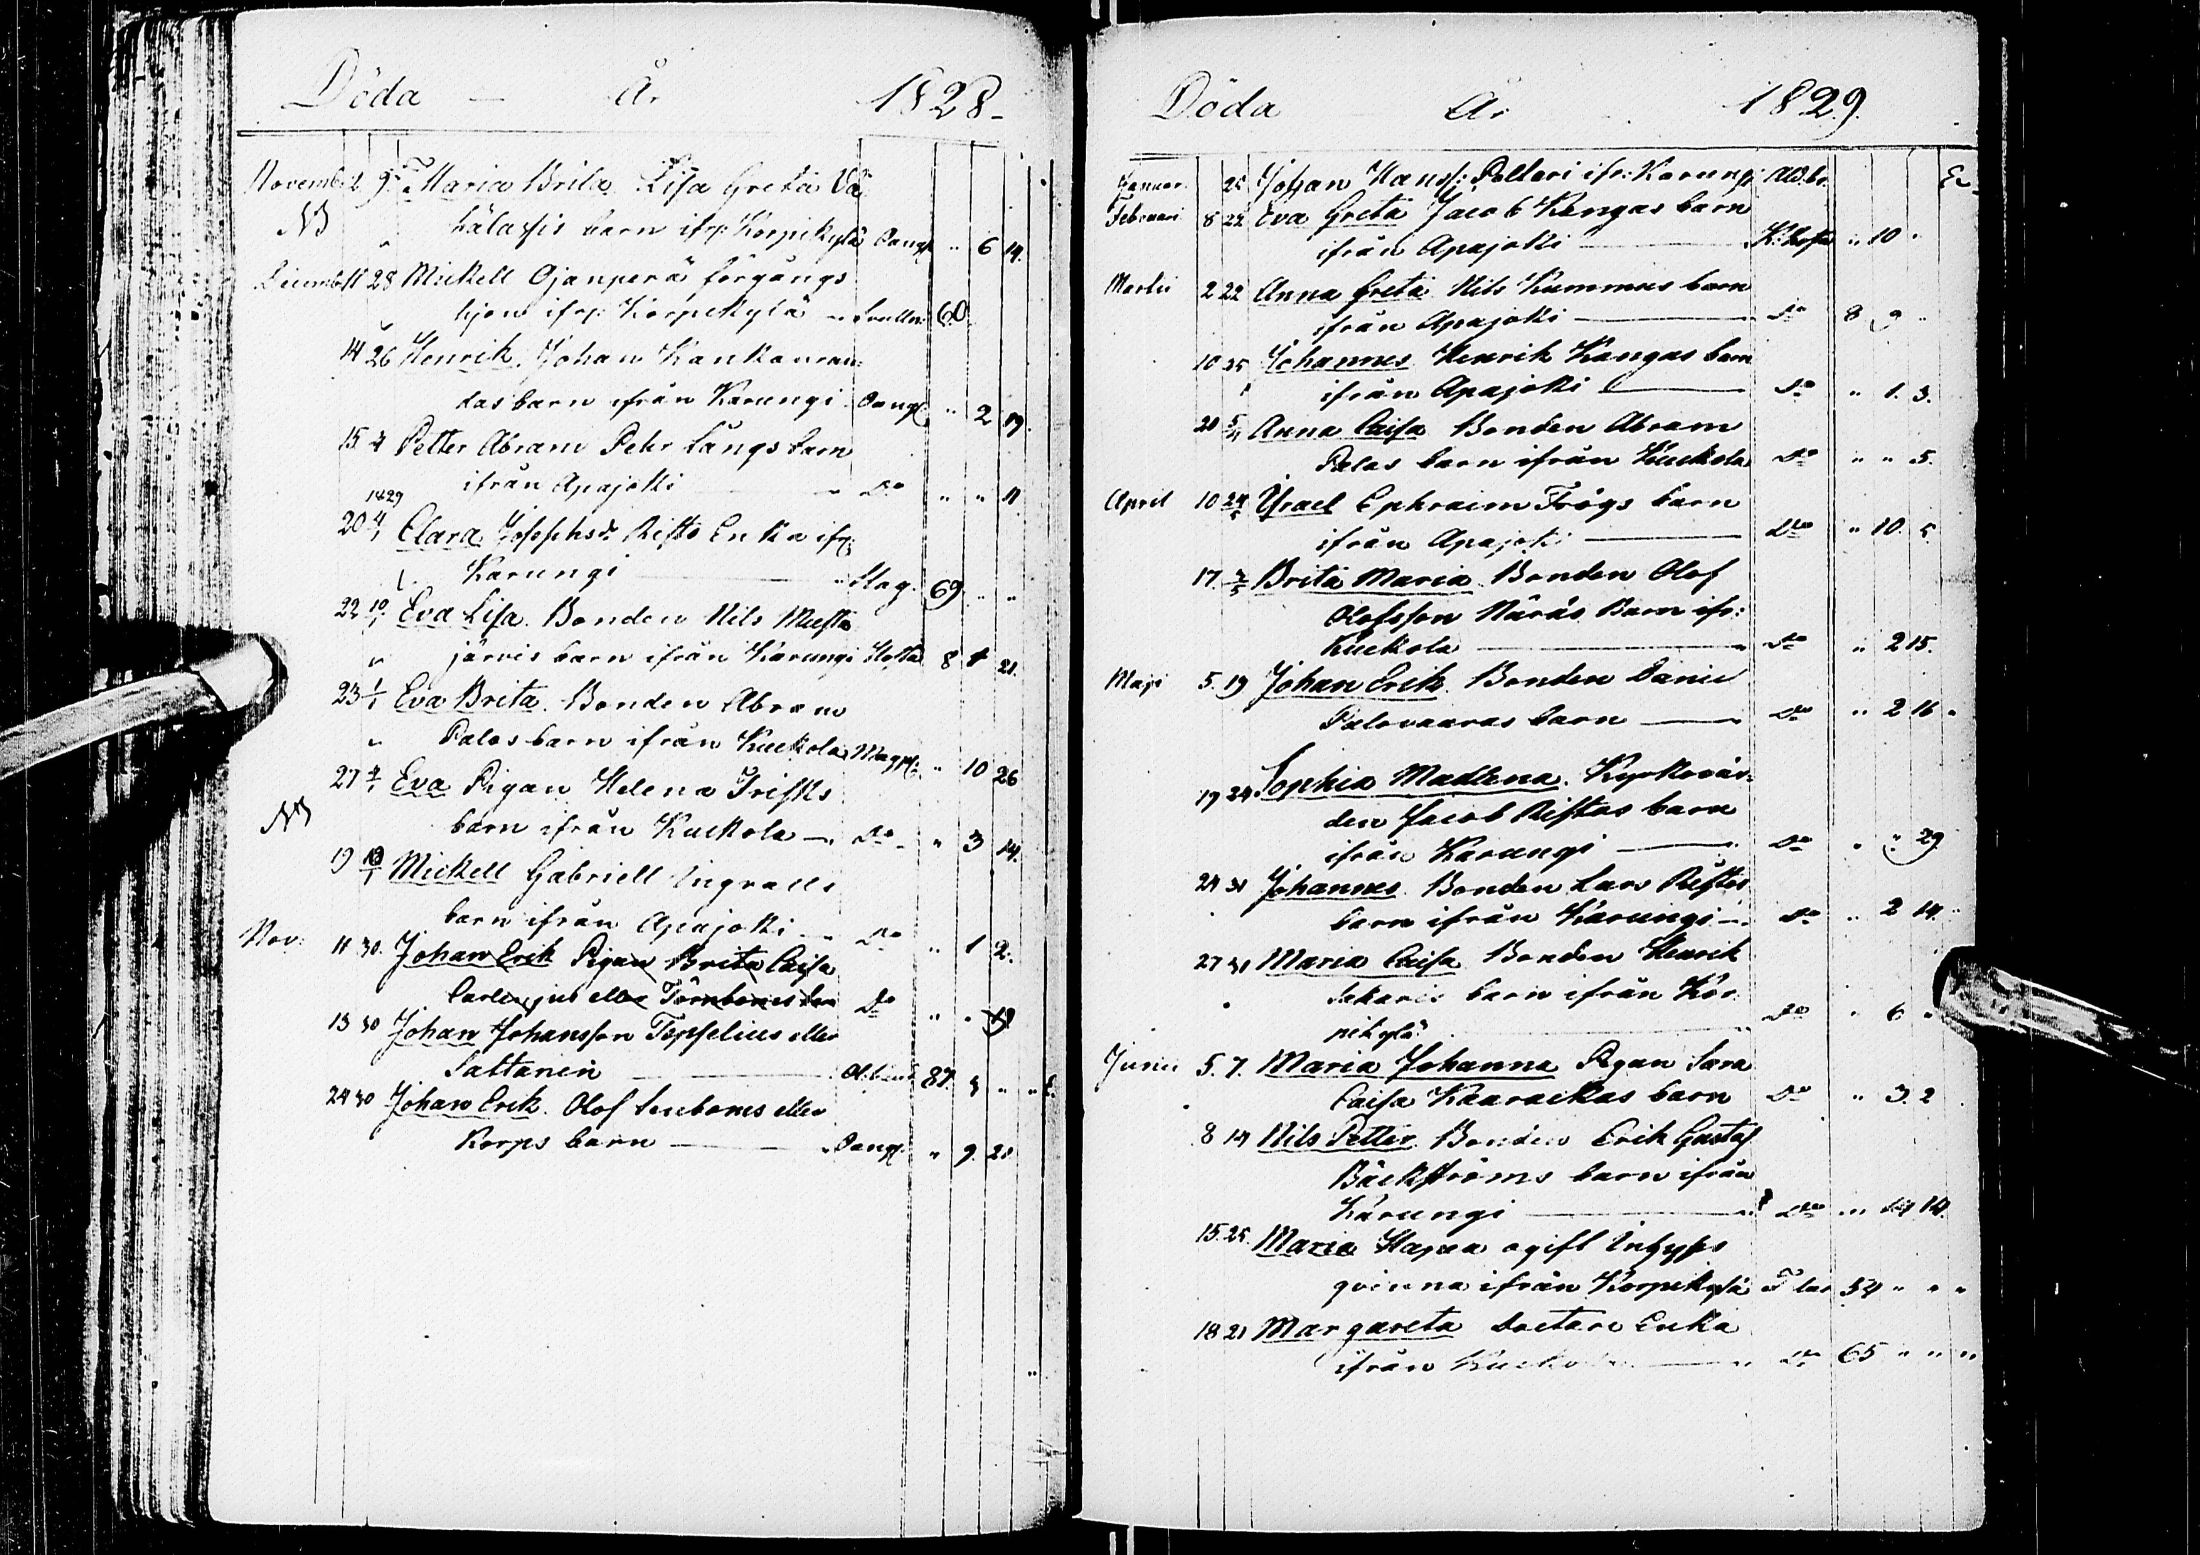 Döda - År 1828-
November 9 Maria Brita Lisa Greta Vä
NB hälassis barn ifr: Korpikylä 6 14.
28 Mickell Ojanperä förgångs
hjon ifr: Korpikylä 60.
14 26 Henrik Johan Kankanran
das barn ifrån Karungi " 2 19.
15 Petter Abram Pehr Långs barn
ifrån Apajoki Do " " 11
1829
20 Clara Josephsdr Risto Enka ifr:
Karungi Slag. 69. " "
22 Eva Lisa. Bonden Nils Musta
järvis barn ifrån Karungi Hosta 8 1 21.
23 Eva Brita. Bonden Abram
Palos barn ifrån Kuckola Magpl: " 10 26
27 Eva Pigan Helena Frisks
NB barn ifrån Kuckola Do " 3 14.
19 Mickell Gabriell Ingvalls
barn ifrån Apajoki Do " 1 2.
Nov: 11 30. Johan Erik Pigan Brita Caisa
eller Törnbomes Do " "
13 30 Johan Johansson eller
87. "
24 30 Johan Erik. Olof eller
Korps barn " 9. 21
Döda År 1829.
Januar. Johan Hanss: Pellari ifr: Karungi
Februari 8 22 Eva Greta Jacob Kengas barn
ifrån Apajoki K: hosta " 10 "
Martii 2 22 Anna Greta Nils Kummus barn
ifrån Apajoki Do 8 9 "
10 25 Johannes Henrik Kangas barn
ifrån Apajoki Do " 1. 3.
21 Anna Caisa Bonden Abram
Palos barn ifrån Kuckola Do " " 5.
April 10 Israel Ephraim Frögs barn
ifrån Apajoki Do " 10. 5.
17. Brita Maria Bonden Olof
Olofsson Närås Barn ifr:
Kuckola Do " 2 15.
Maji 5. 19 Johan Erik Bonden Daniel
Palovaaras barn Do " 2 16 "
19 24 Sophia Madlena. Kyrkovär-
den Jacob Ristos barn
ifrån Karungi Do " " 29
24 31 Johannes. Bonden Lars Ristos
barn ifrån Karungi Do " 2 14. "
27 31 Maria Caisa Bonden Henrik
barn ifrån Kor
pikylä Do " 6 "
Junii 5. 7. Maria Johanna Pigan Sara
Caisa barn Do " 3. 2
8 14 Nils Petter Bonden Erik Gustaf
Bäckströms barn ifrån
Karungi Do "
15. 25. Maria ogift
qvinna ifrån Korpikylä 54 " " "
18 21 Margareta Enka
ifrån Do 65 " " "